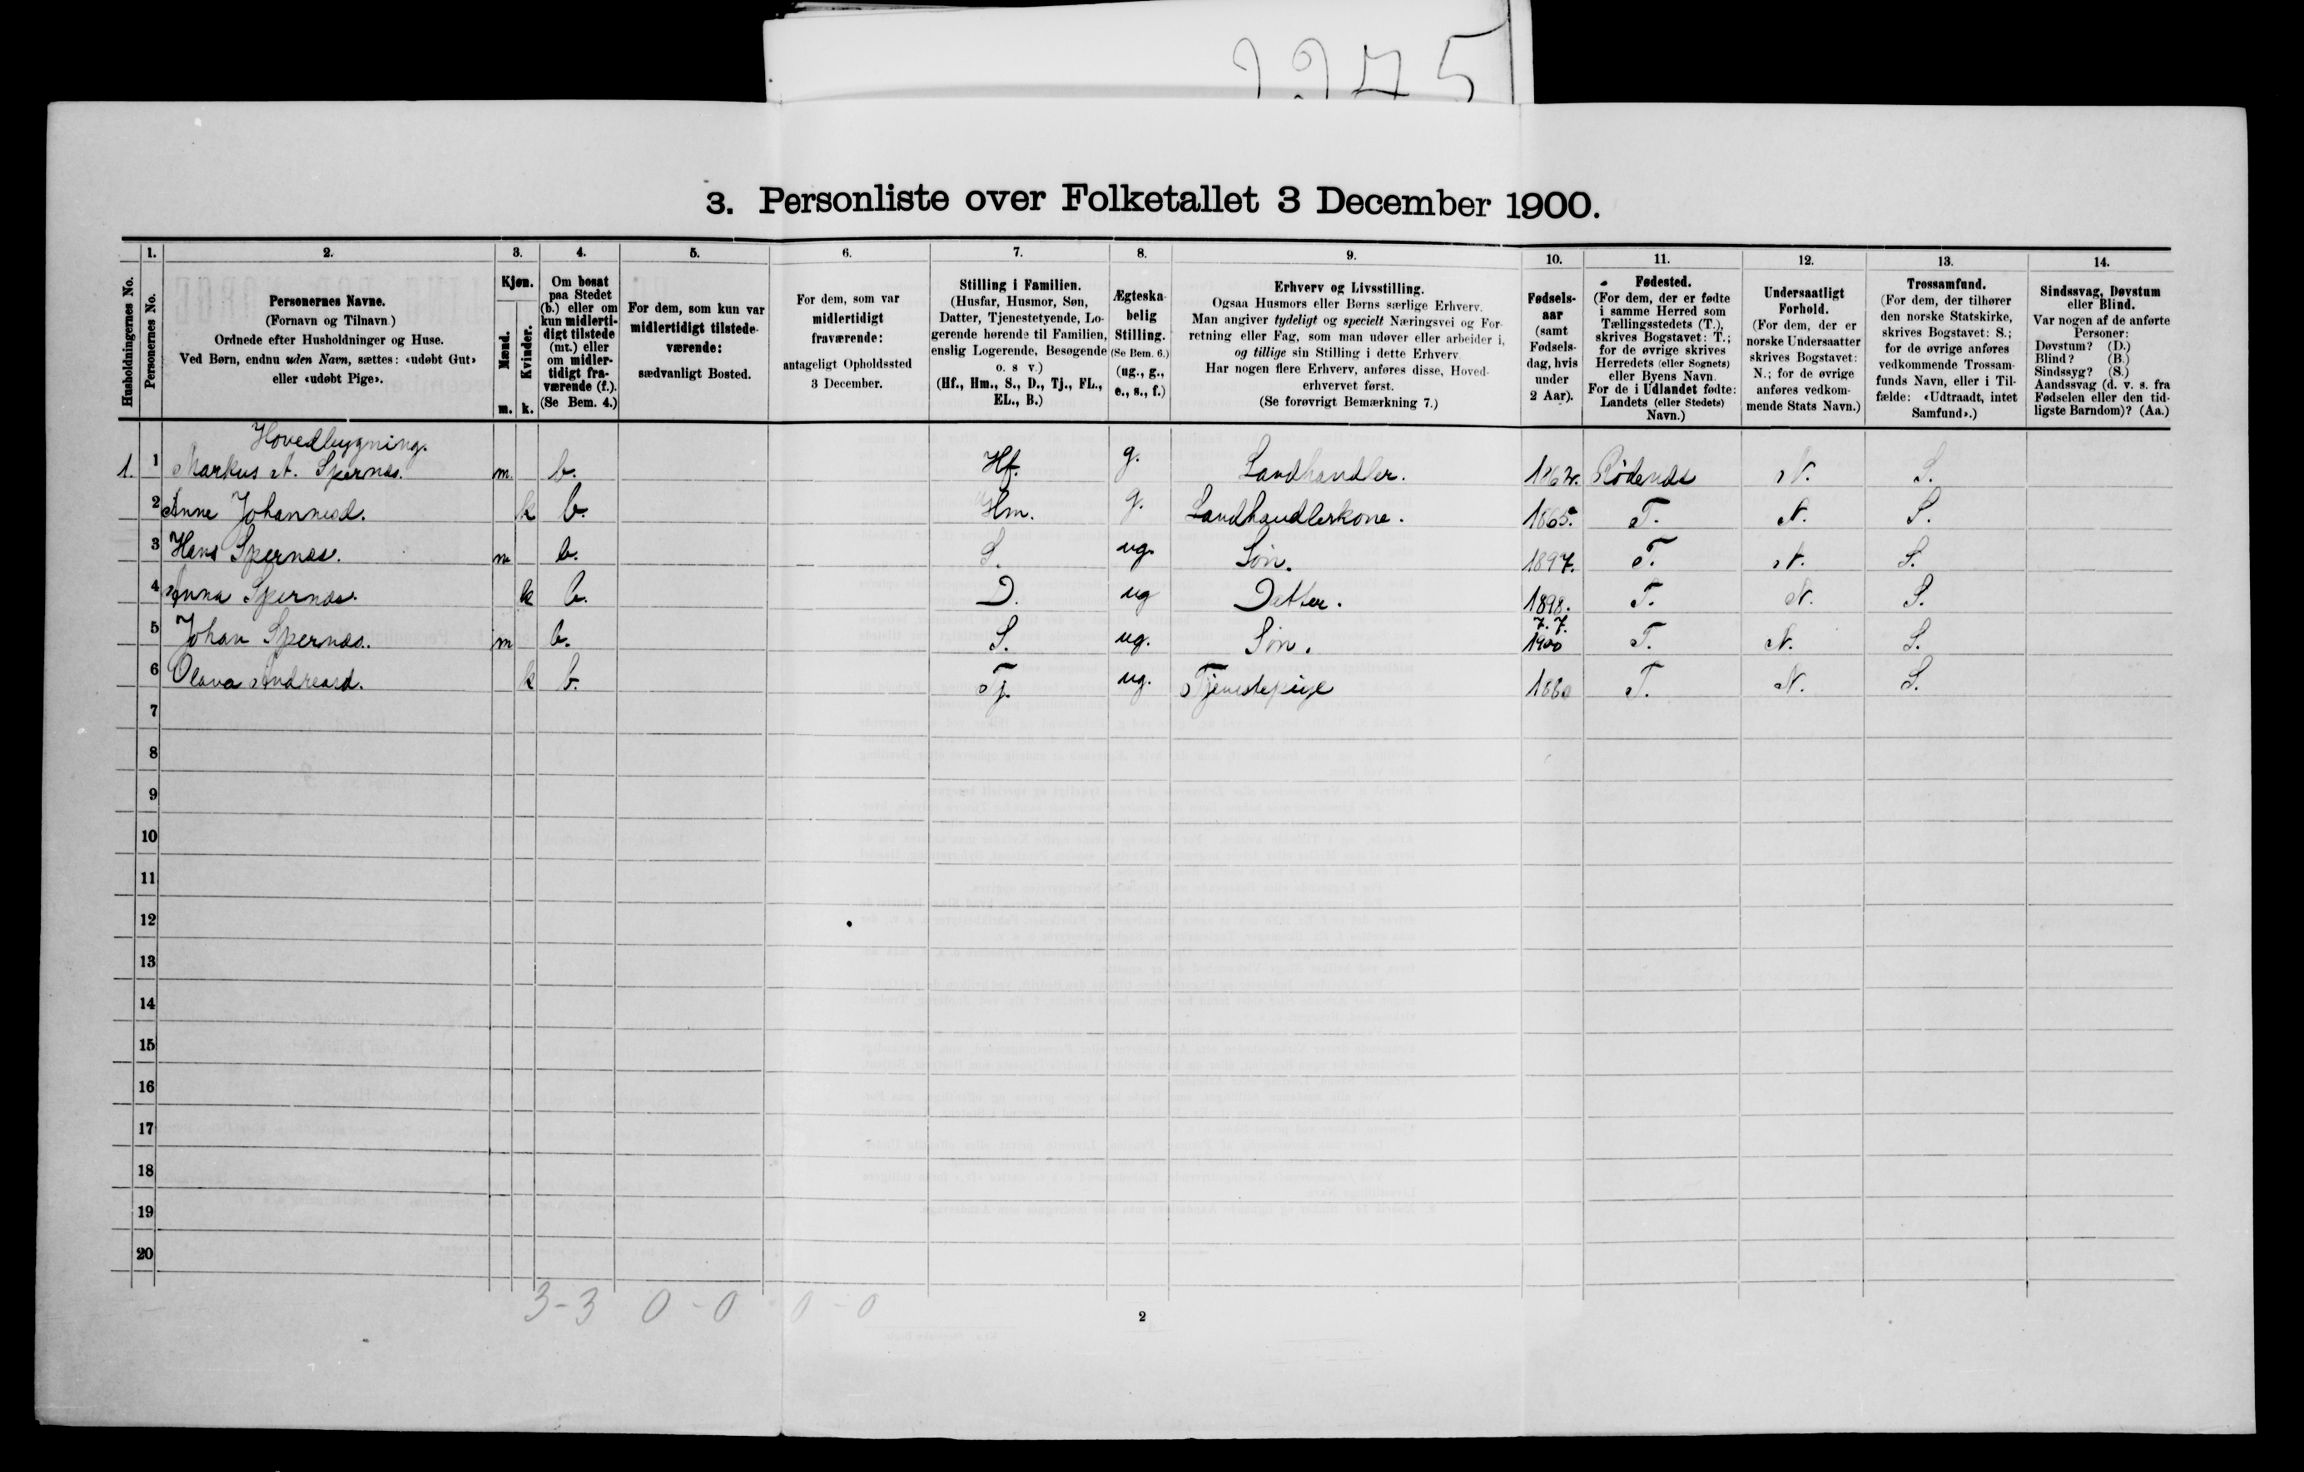 3. Personliste over Folketallet 3 December 1900.
Husholdningernes No.
1.
Personernes No.
2.
Personernes Navne.
(Fornavn og Tilnavn.)
Ordnede efter Husholdninger og Huse.
Ved Børn, endnu uden Navn, sættes: «udøbt Gut»
eller «udøbt Pige».
3.
Kjøn.
Mænd.
Kvinder.
m. k.
4.
Om bosat
paa Stedet
(b.) eller om
kun midlerti-
digt tilstede
(mt.) eller
om midler-
tidigt fra-
værende (f.).
(Se Bem. 4.)
5.
For dem, som kun var
midlertidigt tilstede-
værende:
sædvanligt Bosted.
6.
For dem, som var
midlertidigt
fraværende:
antageligt Opholdssted
3 December.
7.
Stilling i Familien.
(Husfar, Husmor, Søn,
Datter, Tjenestetyende, Lo-
gerende hørende til Familien,
enslig Logerende, Besøgende
o. s v.)
(Hf., Hm., S., D., Tj., FL.,
EL., B.)
8.
Ægteska-
belig
Stilling.
(Se Bem. 6.)
(ug., g.,
e., s., f.)
9.
Erhverv og Livsstilling.
Ogsaa Husmors eller Børns særlige Erhverv.
Man angiver tydeligt og specielt Næringsvei og For-
retning eller Fag, som man udøver eller arbeider i,
og tillige sin Stilling i dette Erhverv.
Har nogen flere Erhverv, anføres disse, Hoved-
erhvervet først.
(Se forøvrigt Bemærkning 7.)
10.
Fødsels-
aar
(samt
Fødsels-
dag, hvis
under
2 Aar).
11.
Fødested.
(For dem, der er fødte
i samme Herred som
Tællingsstedets (T.),
skrives Bogstavet: T.;
for de øvrige skrives
Herredets (eller Sognets)
eller Byens Navn.
For de i Udlandet fødte:
Landets (eller Stedets)
Navn.)
12.
Undersaatligt
Forhold.
(For dem, der er
norske Undersaatter
skrives Bogstavet:
N.; for de øvrige
anføres vedkom-
mende Stats Navn.)
13.
Trossamfund.
(For dem, der tilhører
den norske Statskirke,
skrives Bogstavet: S.;
for de øvrige anføres
vedkommende Trossam-
funds Navn, eller i Til-
fælde: «Udtraadt, intet
Samfund».)
14.
Sindssvag, Døvstum
eller Blind.
Var nogen af de anførte
Personer:
Døvstum? (D.)
Blind? (B.)
Sindssyg? (S.)
Aandssvag (d. v. s. fra
Fødselen eller den tid-
ligste Barndom)? (Aa.)
Hovedbygning.
1. 1 Markus A. Spernæs. m. b. Hf. g. Landhandler. 1862. Rødenæs N. S.
2 Anne Johannesd. k b. Hm. g. Landhandlerkone. 1865. T. N. S.
3 Hans Spernæs. m b. S. ug. Søn. 1897. T. N. S.
4 Anna Spernæs. k b. D. ug Datter. 1898. T. N. S.
5 Johan Spernæs. m b. S. ug. Søn. 7.7. 1900 T. N. S.
6 Olava Andreasd. k b. Tj. ug. Tjenestepige 1880 T. N. S.
7
8
9
10
11
12
13
14
15
16
17
18
19
20
3-3 0-0 0-0
2